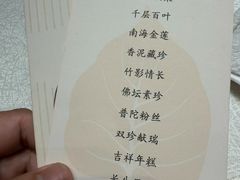 千层百叶
南海金莲
香泥藏珍
竹影情长
佛坛素珍
普陀粉丝
双珍献瑞
吉祥年糕